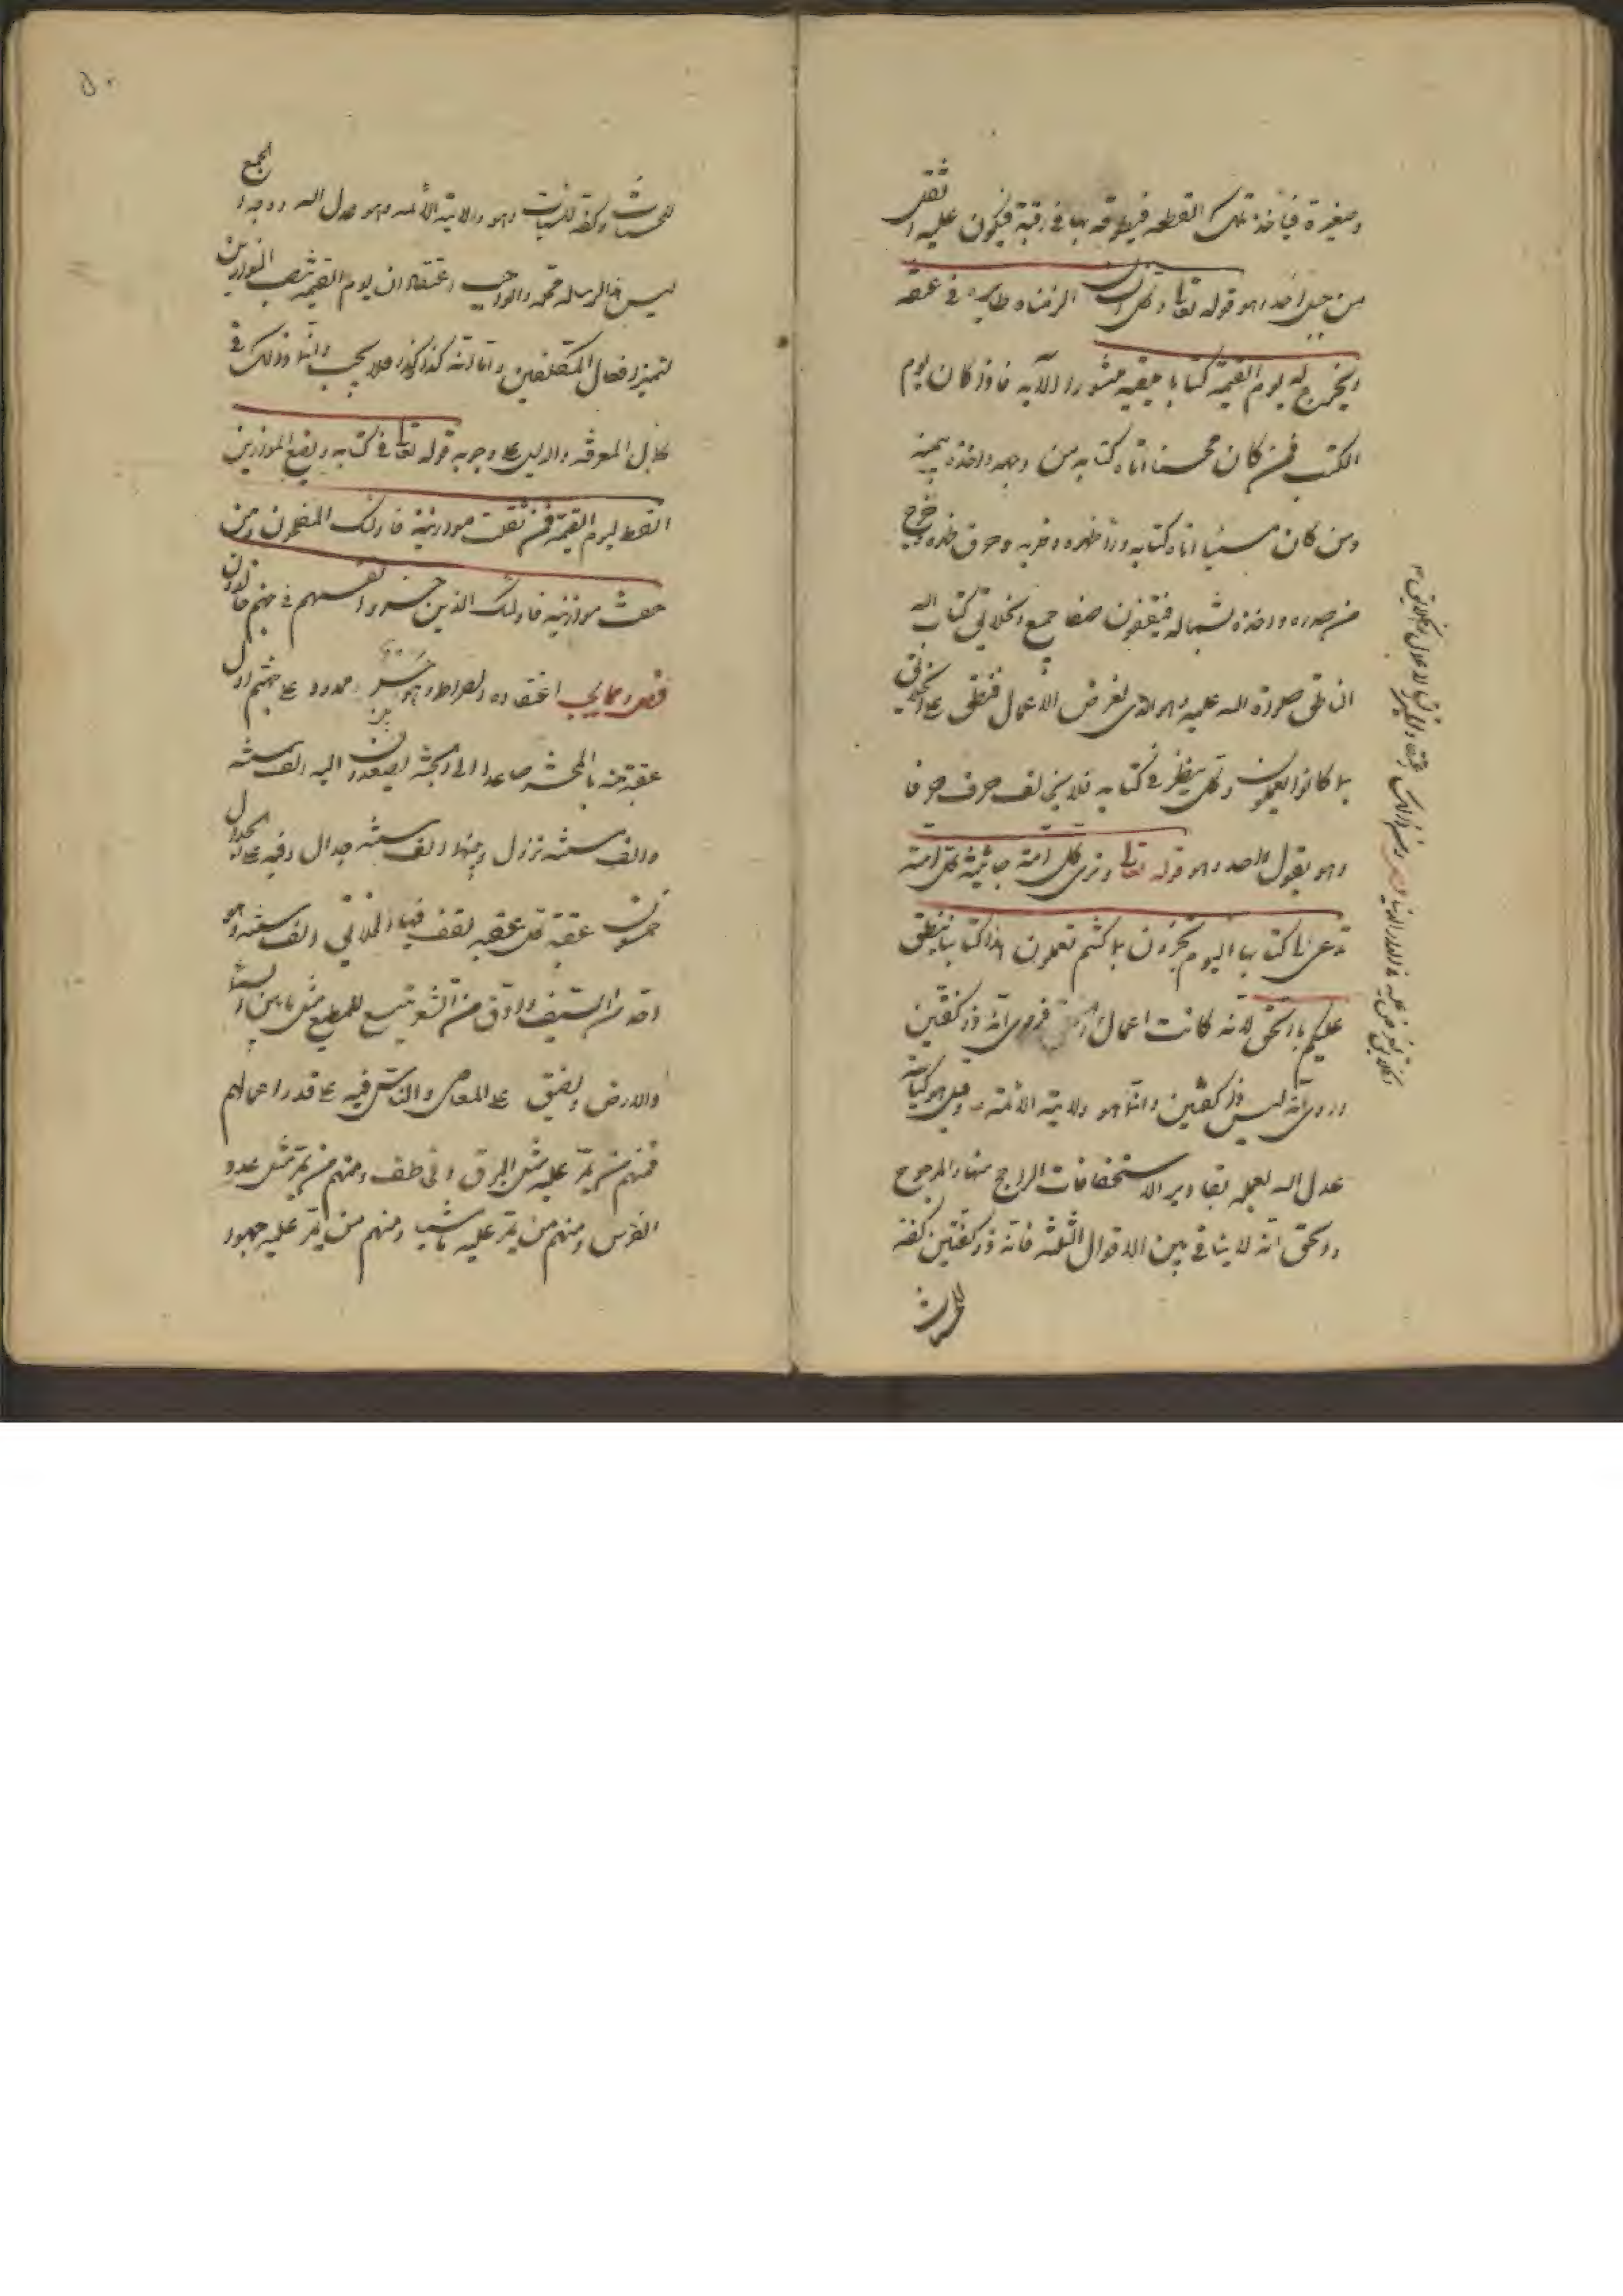 وصغيرة فيأخذ تلك القطعه فيطوقه بها في رقبته فيكون عليه اثقل
من جبل احد وهو قوله تعالى وكل انسان الزمناه طايره في عنقه
ويخرج له يوم القيمة كتابا يلقيه منشورا الآيه فاذا كان يوم
الكتب فمن كان محسنا اتاه كتابه من وجهه واخذه بيمينه
ومن كان مسيئا اتاه كتابه وراء ظهره وضربه وخرق ظهره وخرج
من صدره واخذه بشماله فيقفون صفا جميع الخلائق كتاب الله
الناطق صلوة الله عليه وهو الذى يعرض الأعمال فينطق على الخلائق
بما كانوا يعملون وكل ينظر في كتابه فلا يخالف حرف حرفا
وهو يقول الواحد وهو قوله تعالى وترى كل امة جاثية كل امة
تدعى الى كتابها اليوم تجزون ما كنتم تعملون هذا كتابنا ينطق
عليكم بالحق لانه كانت اعمال فروى انه ذو كفتين
وروى انه ليس ذو كفتين وانما هو ولاية الأئمة ع وقيل هو كناية عن
عدل الله لعلمه بمقادير الاستحقاقات الراجح منها والمرجوح
والحق انه لا ينافي بين الاقوال الثلثة فانه ذو كفتين كفة
للحسنات
للحسنات وكفة للسيئات وهو ولاية الأئمه وهو عدل الله ووجه الجمع
ليس هذا الرساله محله والواجب اعتقاد ان يوم القيمه تنصب الموازين
لتميز افعال المكلفين واما انه كذا وكذا فلا يجب وانما ذلك في
كمال المعرفة والدليل على وجوبه قوله تعالى في كتابه ونضع الموازين
القسط ليوم القيمة فمن ثقلت موازينه فاولئك المفلحون ومن
خفت موازينه فاولئك الذين خسروا انفسهم في جهنم خالدون
فصل ومما يجب اعتقاده الصراط وهو جسر ممدود على جهنم اول
عقبة منه بالمحشر صاعدا الى الجنة يصعدون اليه الف سنة
والف سنة نزول ومنها الف سنة حدال وفيه على الحدال
خمسون عقبة كل عقبه يقف فيها الخلائق الف سنة وهو
احد من السيف وادق من الشعر يتسع للمطيع مثل ما بين السماء
والارض ويضيق على العاصى والناس فيه على قدر اعمالهم
فمنهم من يمر عليه مثل البرق الخاطف ومنهم من يمر مثل عدو
الفرس ومنهم من يمر عليه ماشيا ومنهم من يمر عليه حبوا